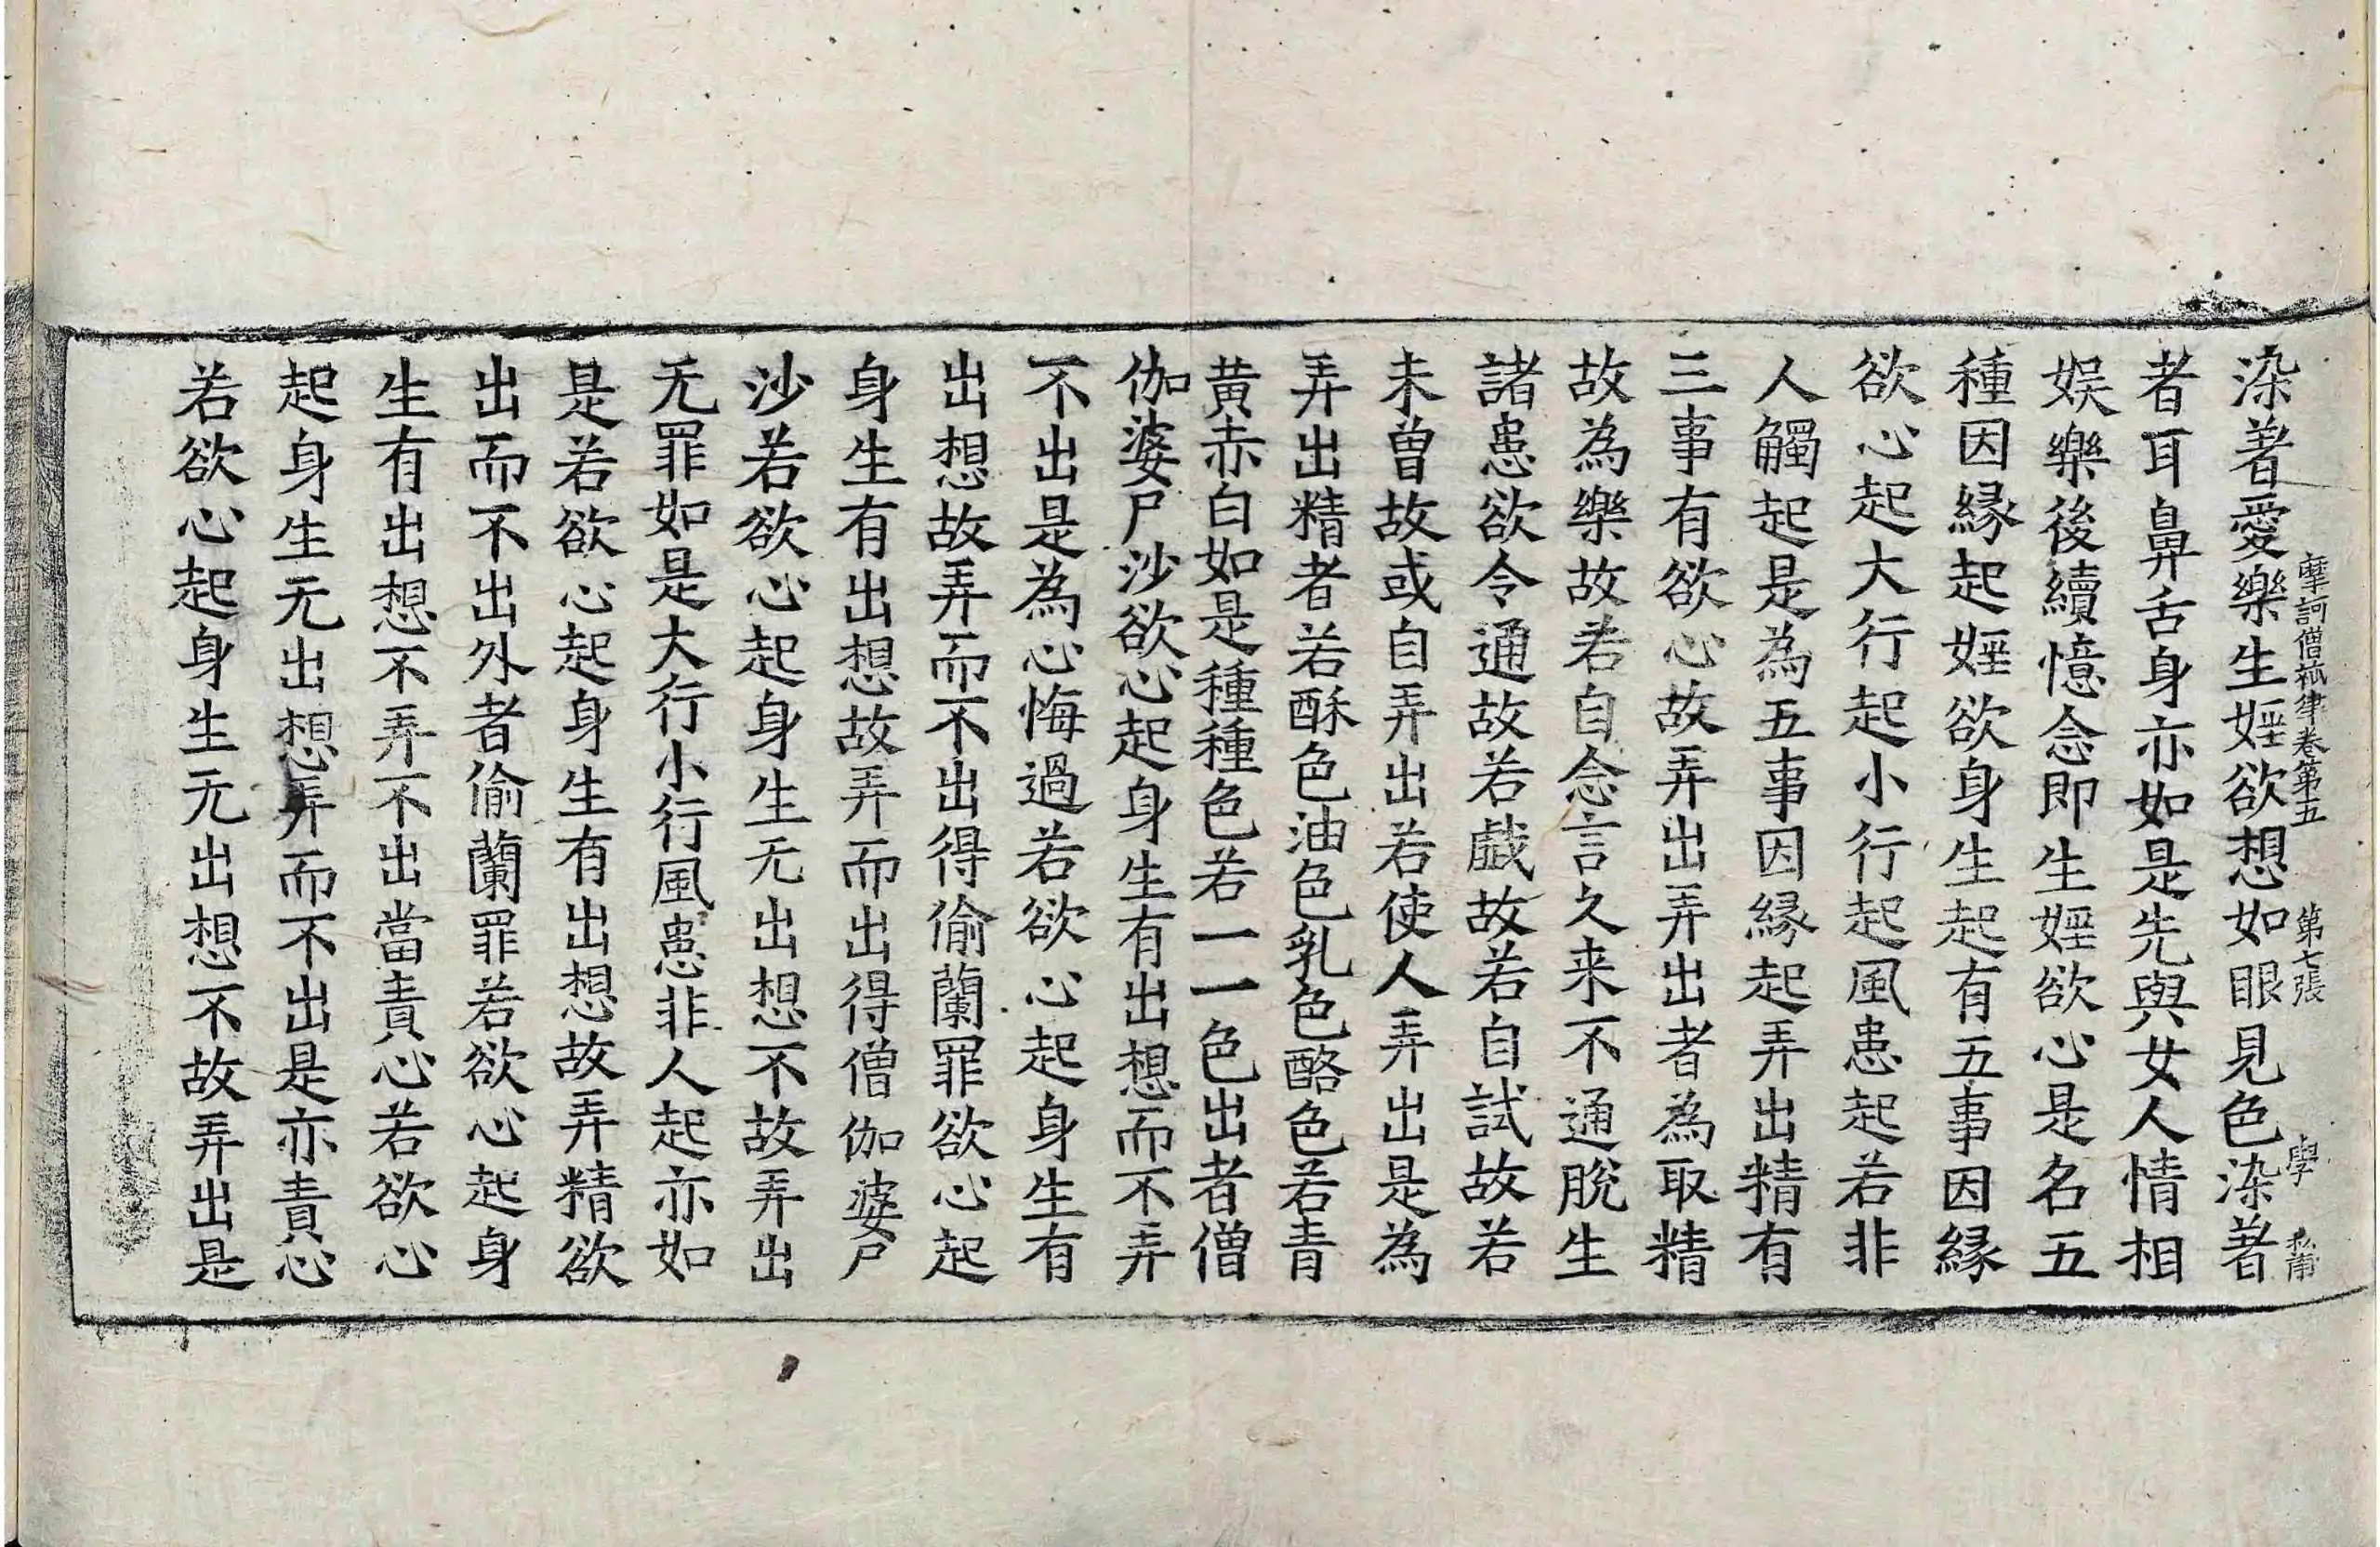 摩訶僧祇律卷第五 第七張 學
染著愛樂生婬欲想如眼見色染著
者耳鼻舌身亦如是先與女人情相
娯樂後續憶念即生婬欲心是名五
種因縁起婬欲身生起有五事因縁
欲心起大行起小行起風患起若非
人觸起是為五事因縁起弄出精有
三事有欲心故弄出弄出者為取精
故為樂故若自念言久来不通脫生
諸患欲令通故若戱故若自試故若
未曽故或自弄出若使人弄出是為
弄出精者若酥色油色乳色酪色若青
黄赤白如是種種色若一一色出者僧
伽婆尸沙欲心起身生有出想而不弄
不出是為心悔過若欲心起身生有
出想故弄而不出得偷蘭罪欲心起
身生有出想故弄而出得僧伽婆尸
沙若欲心起身生无出想不故弄出
无罪如是大行小行風患非人起亦如
是若欲心起身生有出想故弄精欲
出而不出外者偷蘭罪若欲心起身
生有出想不弄不出當責心若欲心
起身生无出想弄而不出是亦責心
若欲心起身生无出想不故弄出是